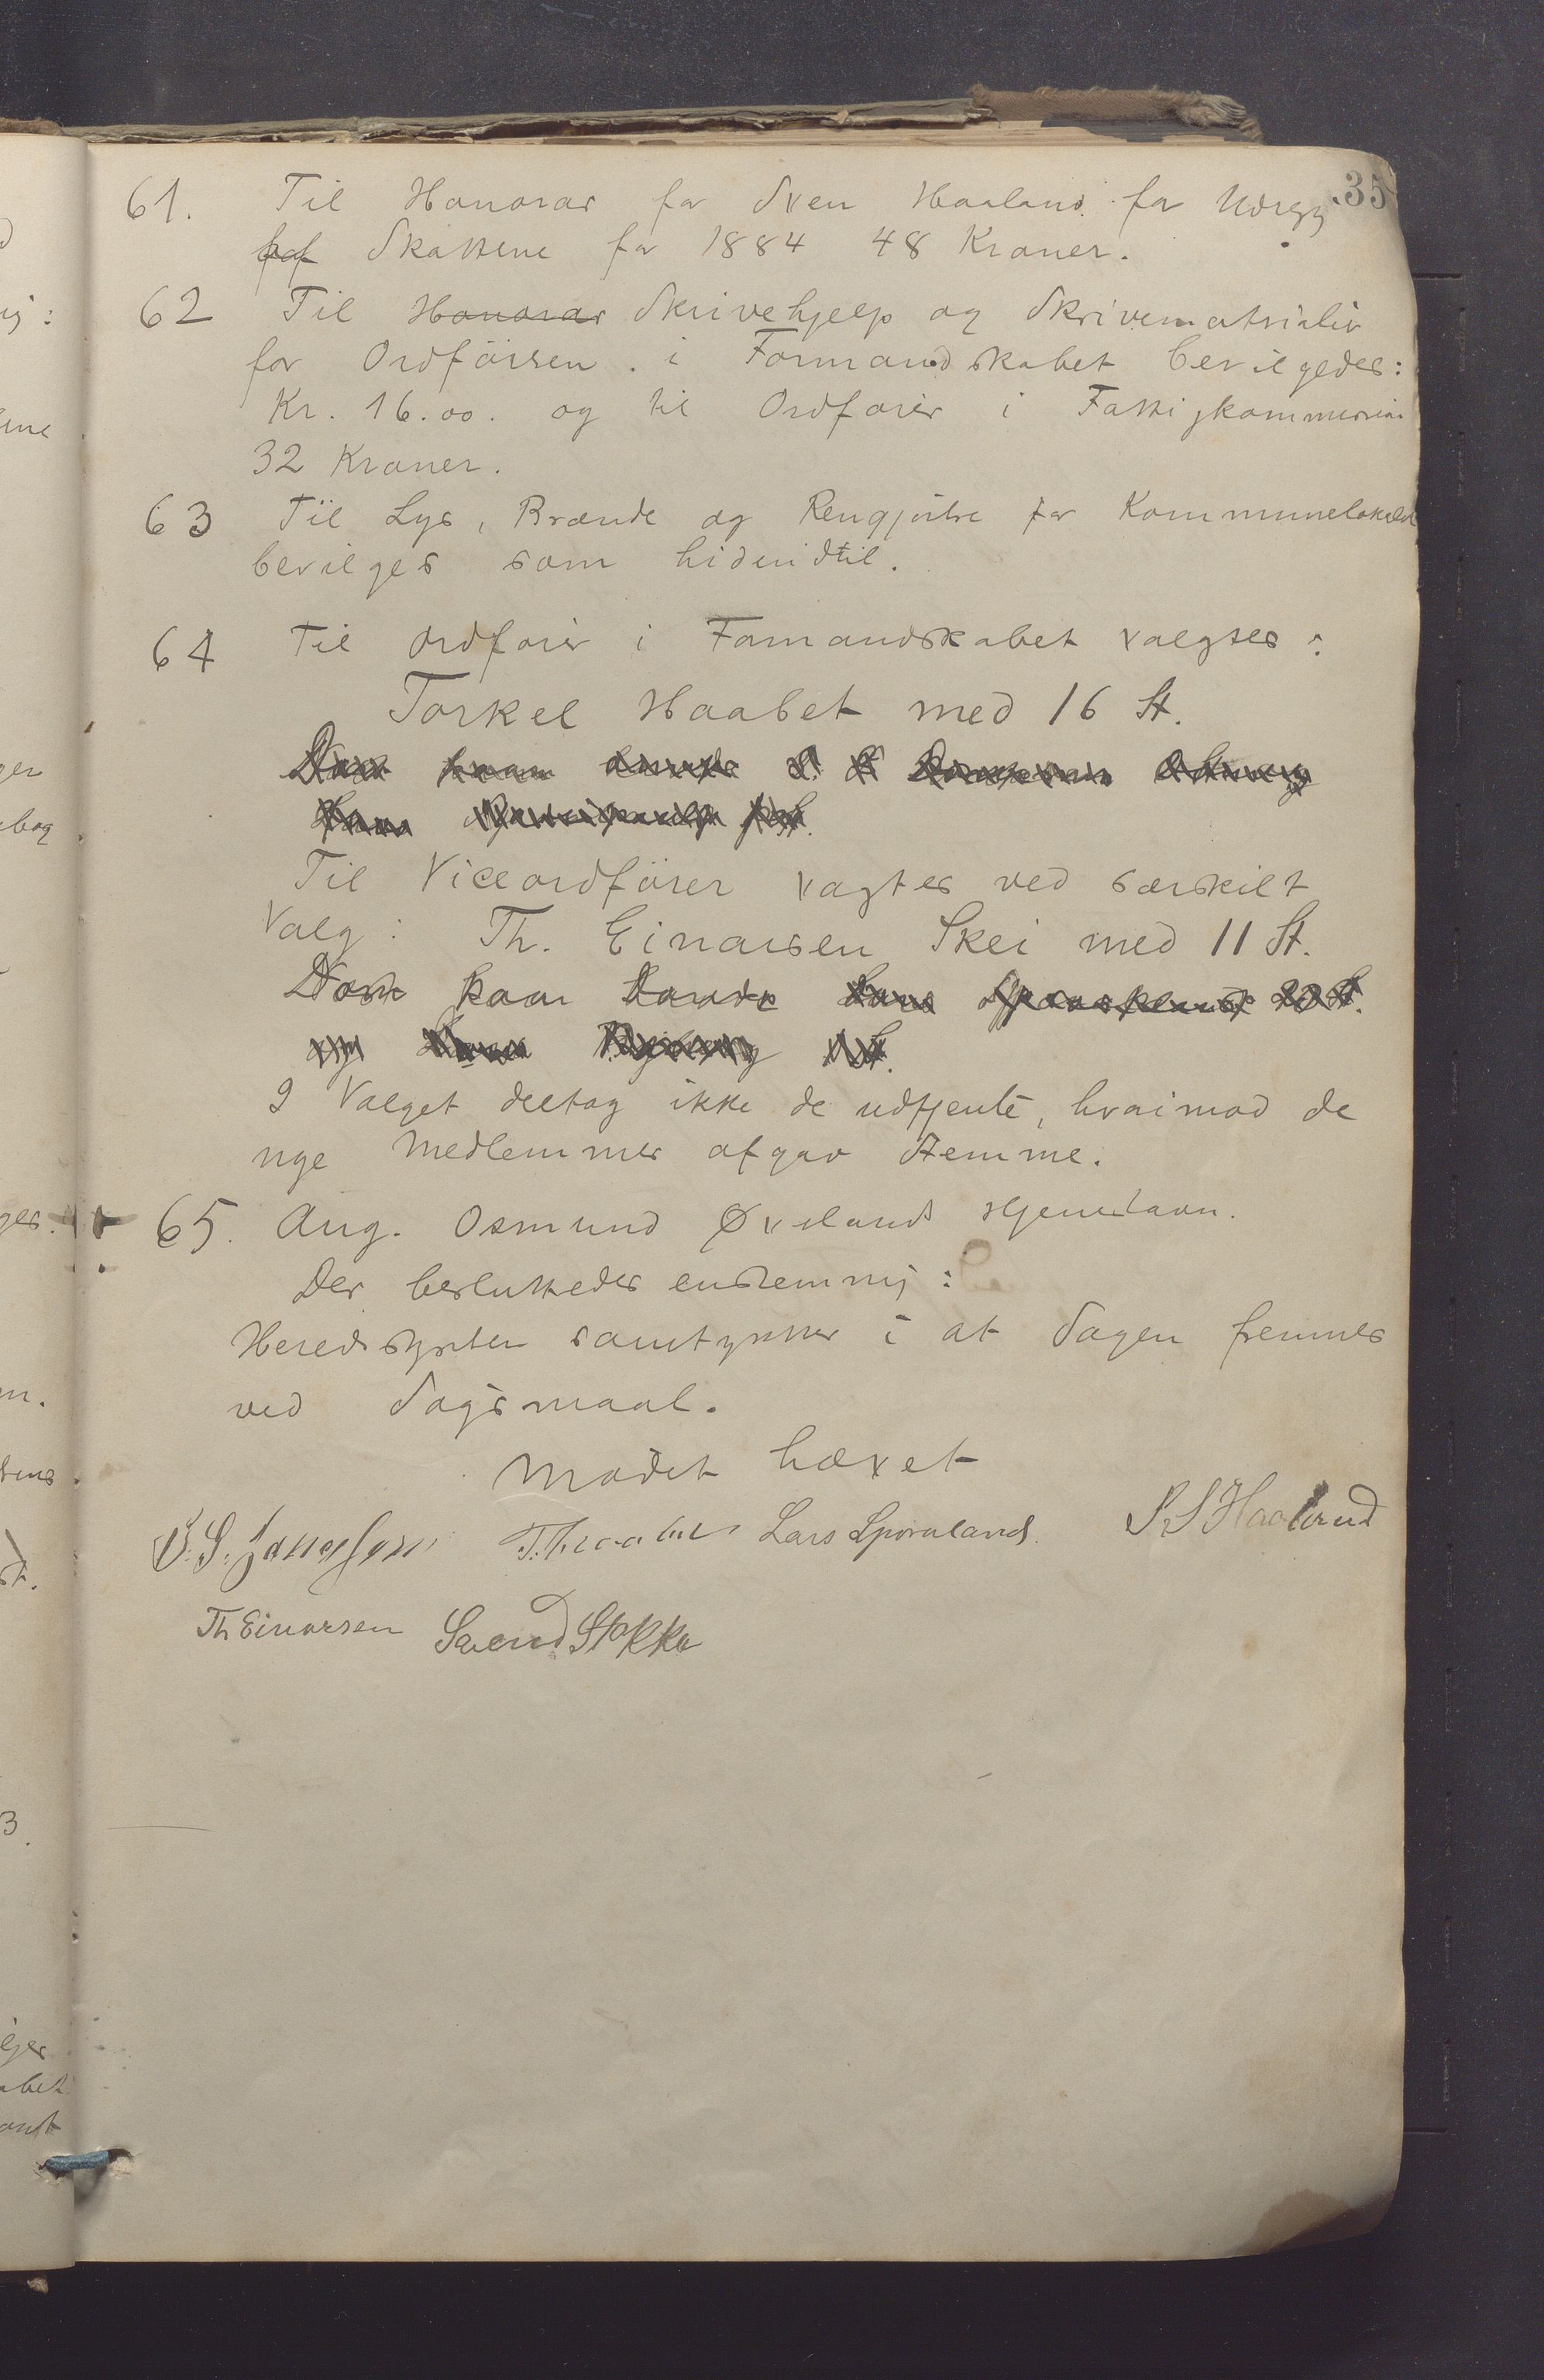 35
61. Til Honorar for Sven Haaland for Udregg
for Skattene for 1884 48 Kroner.
62 Til Honorar Skrivehjelp og Skrivematrialier
for Ordföreren. i Formandskabet bevilgedes:
Kr. 16.00. og til Ordforer i Fattigkommission
32 Kroner.
63 Til Lys, Brænde og Rengjörelse for Kommunelokalet
bevilges som hidindtil.
64 Til Ordforer i Formandskabet valgtes:
Torkel Haabet med 16 St.
Til Viceordförer vagtes ved særskilt
Valg: Th. Einarsen Skei med 11 St.
Dom kaar
I Valget deltog ikke de udtjente, hvaimod de
nye Medlemmer afgav Stemme.
65. Ang. Osmund Øveland Hjemstavn.
Der besluttedes enstemmij:
Heredsstyrelsen samtykker i at Sagen fremmes
ved Sogsmaal.
Mödet hævet
T. Haabet Lars Sporaland S S Haaland
Th Einarsen Svend Stokka